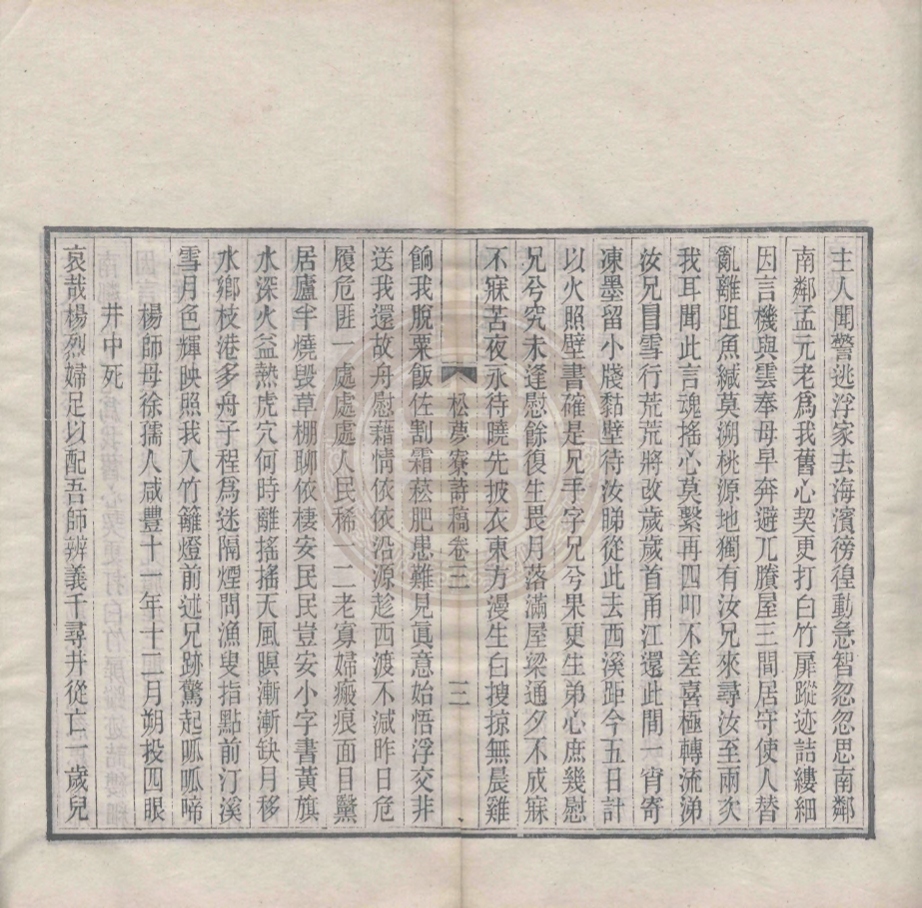 主人聞警逃浮家去海濱徬徨動急智忽忽思南鄰
南鄰孟元老爲我舊心契更打白竹扉蹤迹詰縷細
因言機與雲奉母早奔避兀賸屋三間居守使人替
亂離阻魚緘莫溯桃源地獨有汝兄來尋汝至兩次
我耳聞此言魂搖心莫繫再四叩不差喜極轉流涕
汝兄冒雪行荒荒將改歲歲首甬江還此間一宵寄
凍墨留小牋黏壁待汝睇從此去西溪距今五日計
以火照壁書確是兄手字兄兮果更生弟心庶幾慰
兄兮究未逢慰餘復生畏月落滿屋梁通夕不成寐
不寐苦夜永待曉先披衣東方漫生白搜掠無晨雞
松夢寮詩稿卷三
三
餉我脫粟飯佐割霜菘肥患難見眞意始悟浮交非
送我還故舟慰藉情依依沿源趁西渡不減昨日危
履危匪一處處處人民稀一二老寡婦瘢痕面目黳
居廬半燒毀草棚聊依棲安民民豈安小字書黃旗
水深火益熱虎穴何時離搖搖天風瞑漸漸缺月移
水鄉枝港多舟子程爲迷隔煙問漁叟指點前汀溪
雪月色輝映照我入竹籬燈前述兄跡驚起呱呱啼
楊師母徐孺人咸豐十一年十二月朔投四眼
井中死
哀哉楊烈婦足以配吾師辨義千尋井從亡一歲兒